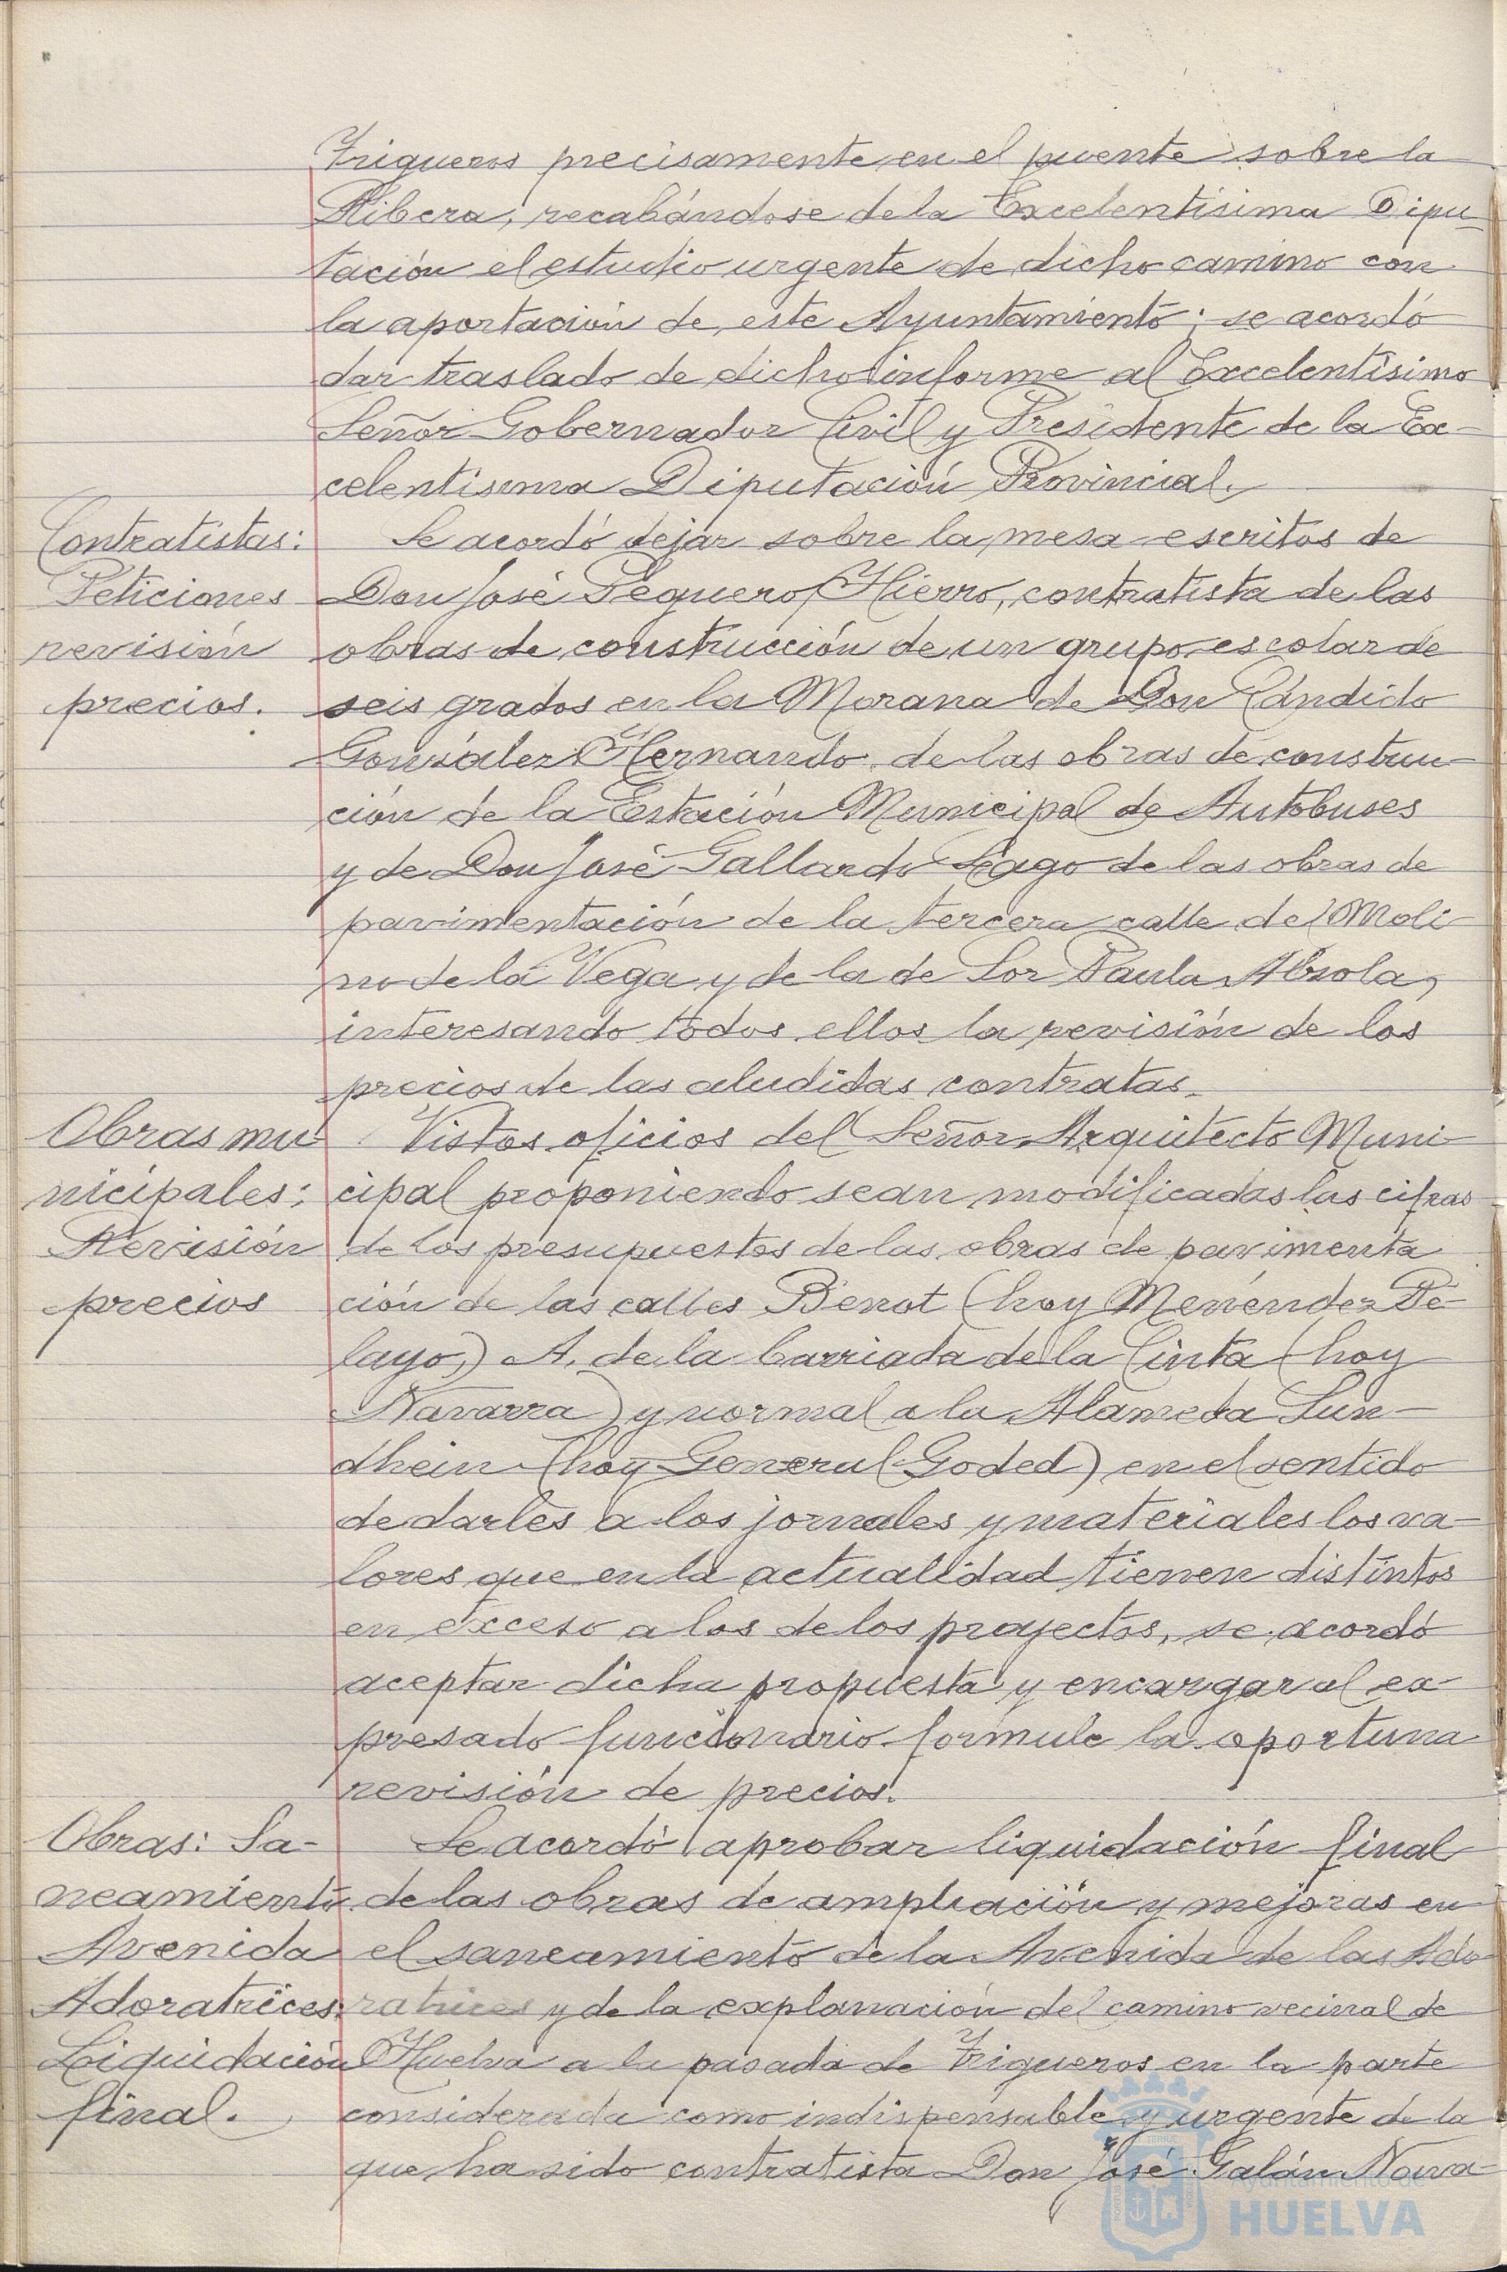 Trigueros precisamente en el puente sobre la
Ribera, recabándose de la Excelentísima Dipu-
tación el estudio urgente de dicho camino con
la aportación de este Ayuntamiento; se acordó
dar traslado de dicho informe al Excelentísimo
Señor Gobernador Civil y Presidente de la Ex-
celentisima Diputación Provincial.
Contratistas:
Peticiones
revisión
precios.
Se acordó dejar sobre la mesa escritos de
Don José Peguero Hierro, contratista de las
obras de construcción de un grupo escolar de
seis grados en la Morana de Don Cándido
González Hernando de las obras de construc-
ción de la Estación Municipal de Autobuses
y de Don José Gallardo Lago de las obras de
pavimentación de la tercera calle del Moli-
no de la Vega y de la de Sor Paula Alzola,
interesando todos ellos la revisión de los
precios de las aludidas contratas.
Obras mu-
nicipales:
Revisión
precios
Vistos oficios del Señor Arquitecto Muni-
cipal proponiendo sean modificadas las cifras
de los presupuestos de las obras de pavimenta
ción de las calles Benot (hoy Menéndez Pe-
layo,) A. de la barriada de la Cinta (hoy
Navarra) y normal a la Alameda Sun-
dhein (hoy General Goded) en el sentido
de darles a los jornales y materiales los va-
lores que en la actualidad tienen distintos
en exceso a los de los proyectos, se acordó
aceptar dicha propuesta y encargar al ex-
presado funcionario formule la oportuna
revisión de precios.
Obras: Sa-
neamiento
Avenida
Adoratrices:
Liquidación
final.
Se acordó aprobar liquidación final
de las obras de ampliación y mejoras en
el saneamiento de la Avenida de las Ado
ratrices y de la explanación del camino vecinal de
Huelva a la pasada de Trigueros en la parte
considerada como indispensable y urgente de la
que ha sido contratista Don José Galán Nava-
Ayuntamiento de
HUELVA